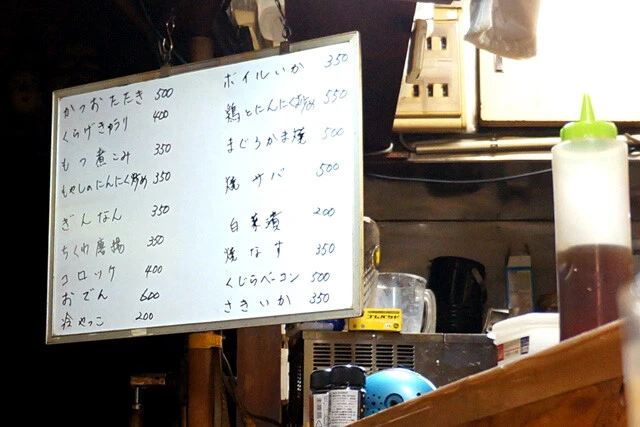 かつおたたき 500
くらげきゅうり 400
もつ煮こみ 350
もやしのにんにく炒め 350
ぎんなん 350
ちくわ磨揚 350
コロッケ 400
おでん 600
冷やっこ 200
ボイルいか 350
鶏とにんにく炒め 550
まぐろかま焼 500
焼サバ 500
白菜漬 200
焼なす 350
くじらベーコン 500
さきいか 350